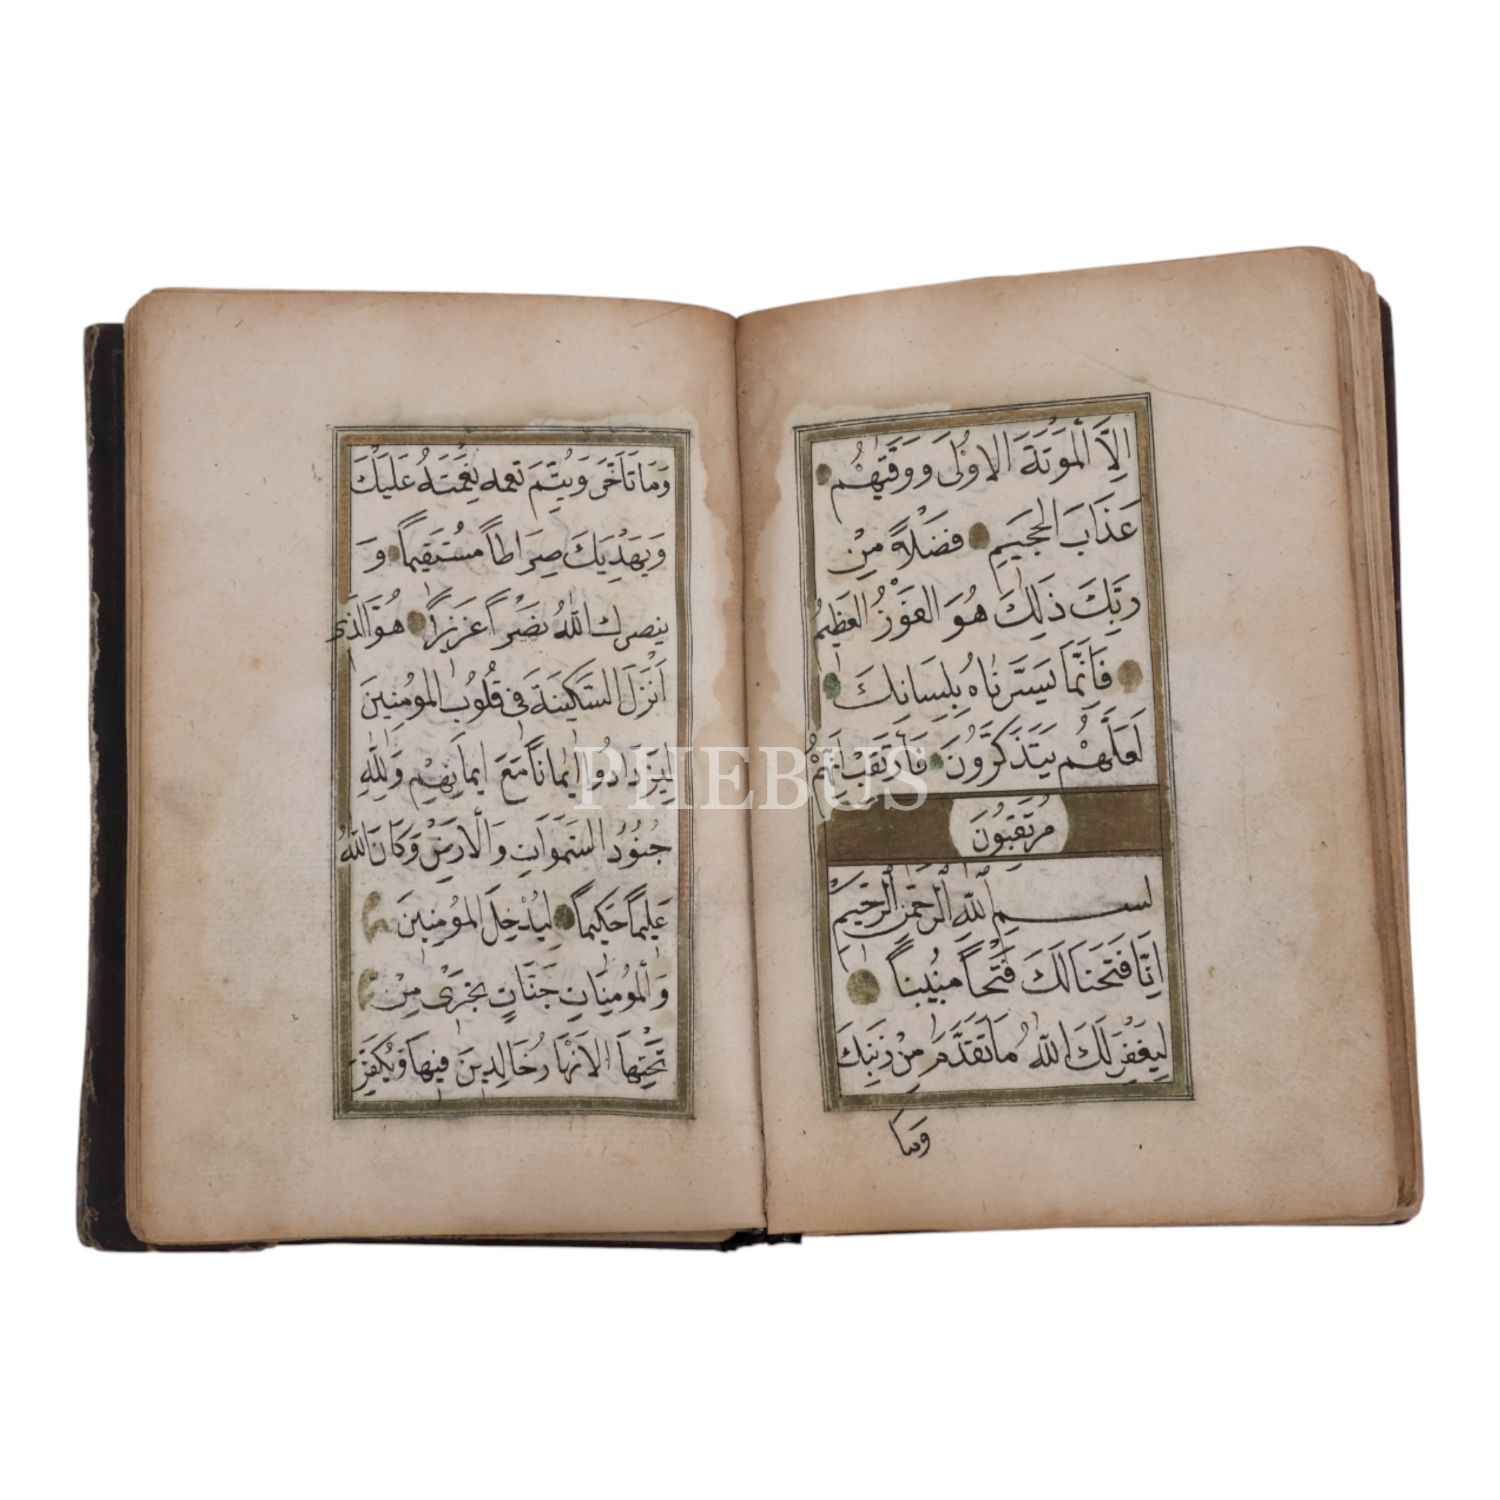 اِلَّا اْلمَوْتَةَ الاوُلٰى وَوَقٰيهُمْ
عَذَابَ الْجَحَيمِ فَضْلاً مِنْ
رَبِّكَ ذٰلِكَ هُوَ الْفَوْزُ الْعَظيمُ
فَاِنَّمَا يَسَّرْنَاهُ بِلِسَانِكَ
لَعَلَّهُمْ يَتَذَكَّرُونَ فَارْتَقِبْ اِنَّهُمْ
مُرْتَقِبُونَ
بسم اللهِ الرَّحْمٰنِ الرَّحيمِ
اِنَّا فَتَحْنَا لَكَ فَتْحاً مُبيناً
لِيَغْفِرَ لَكَ اللهُ مَا تَقَدَّمَ مِنْ ذَنْبِكَ
وما
وَمَا تَاَخَّرَ وَيُتِمَّ نعمه نِعْمَتَهُ عَلَيْكَ
وَيَهْدِيَكَ صِرَاطاً مُسْتَقيماً وَ
ينصرك اللهُ نَصْراً عَزيزاً هُوَ الَّذى
اَنْزَلَ السَّكينَةَ فى قُلُوبِ الْمُؤمِنينَ
لِيَزْدَادُوا ايمَاناً مَعَ ايمَانِهِمْ وَلِلّٰهِ
جُنُودُ السَّمَوَاتِ وَالْاَرْضِ وَكَانَ اللهُ
عَليماً حَكيماً لِيُدْخِلَ الْمُؤمِنينَ
وَالْمُؤمِنَاتِ جَنَّاتٍ تَجْرى مِنْ
تَحْتِهَا الاَنْهَارُ خَالِدينَ فيهَا وَيُكَفِّرَ
PHEBUS